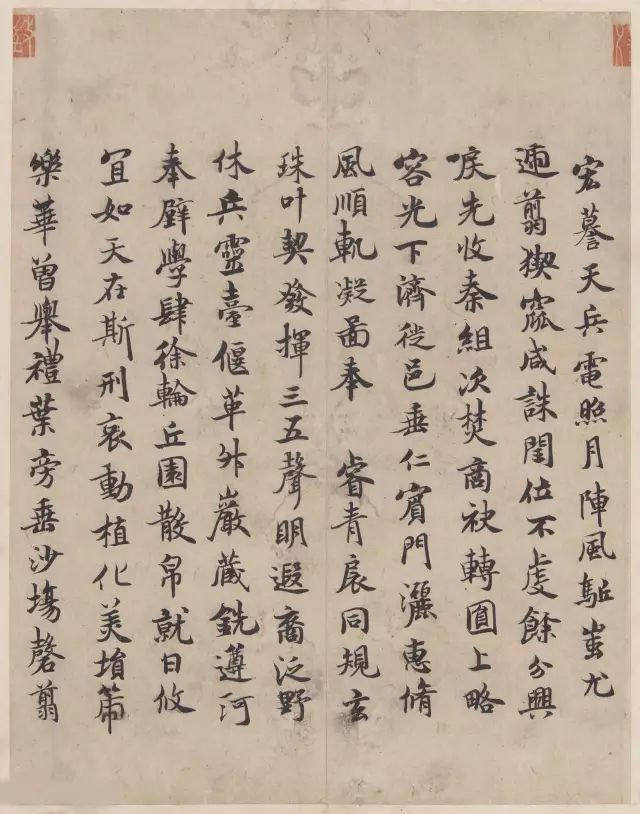 宏謩天兵電照月陣風駈蚩尤
遄翦猰窳咸誅閏位不虔餘分興
唳先收秦組次焚商袂轉圓上略
容光下濟徙邑垂仁賓門灑惠脩
風順軌凝圖奉 睿青扆同規玄
珠叶契發揮三五聲明遐裔泛野
休兵靈臺偃革外巖藏銑遵河
奉璧學肆徐輪丘園散帛就日攸
宜如天在斯刑哀動植化美塤箎
樂華曾舉禮葉旁垂沙塲磬翦